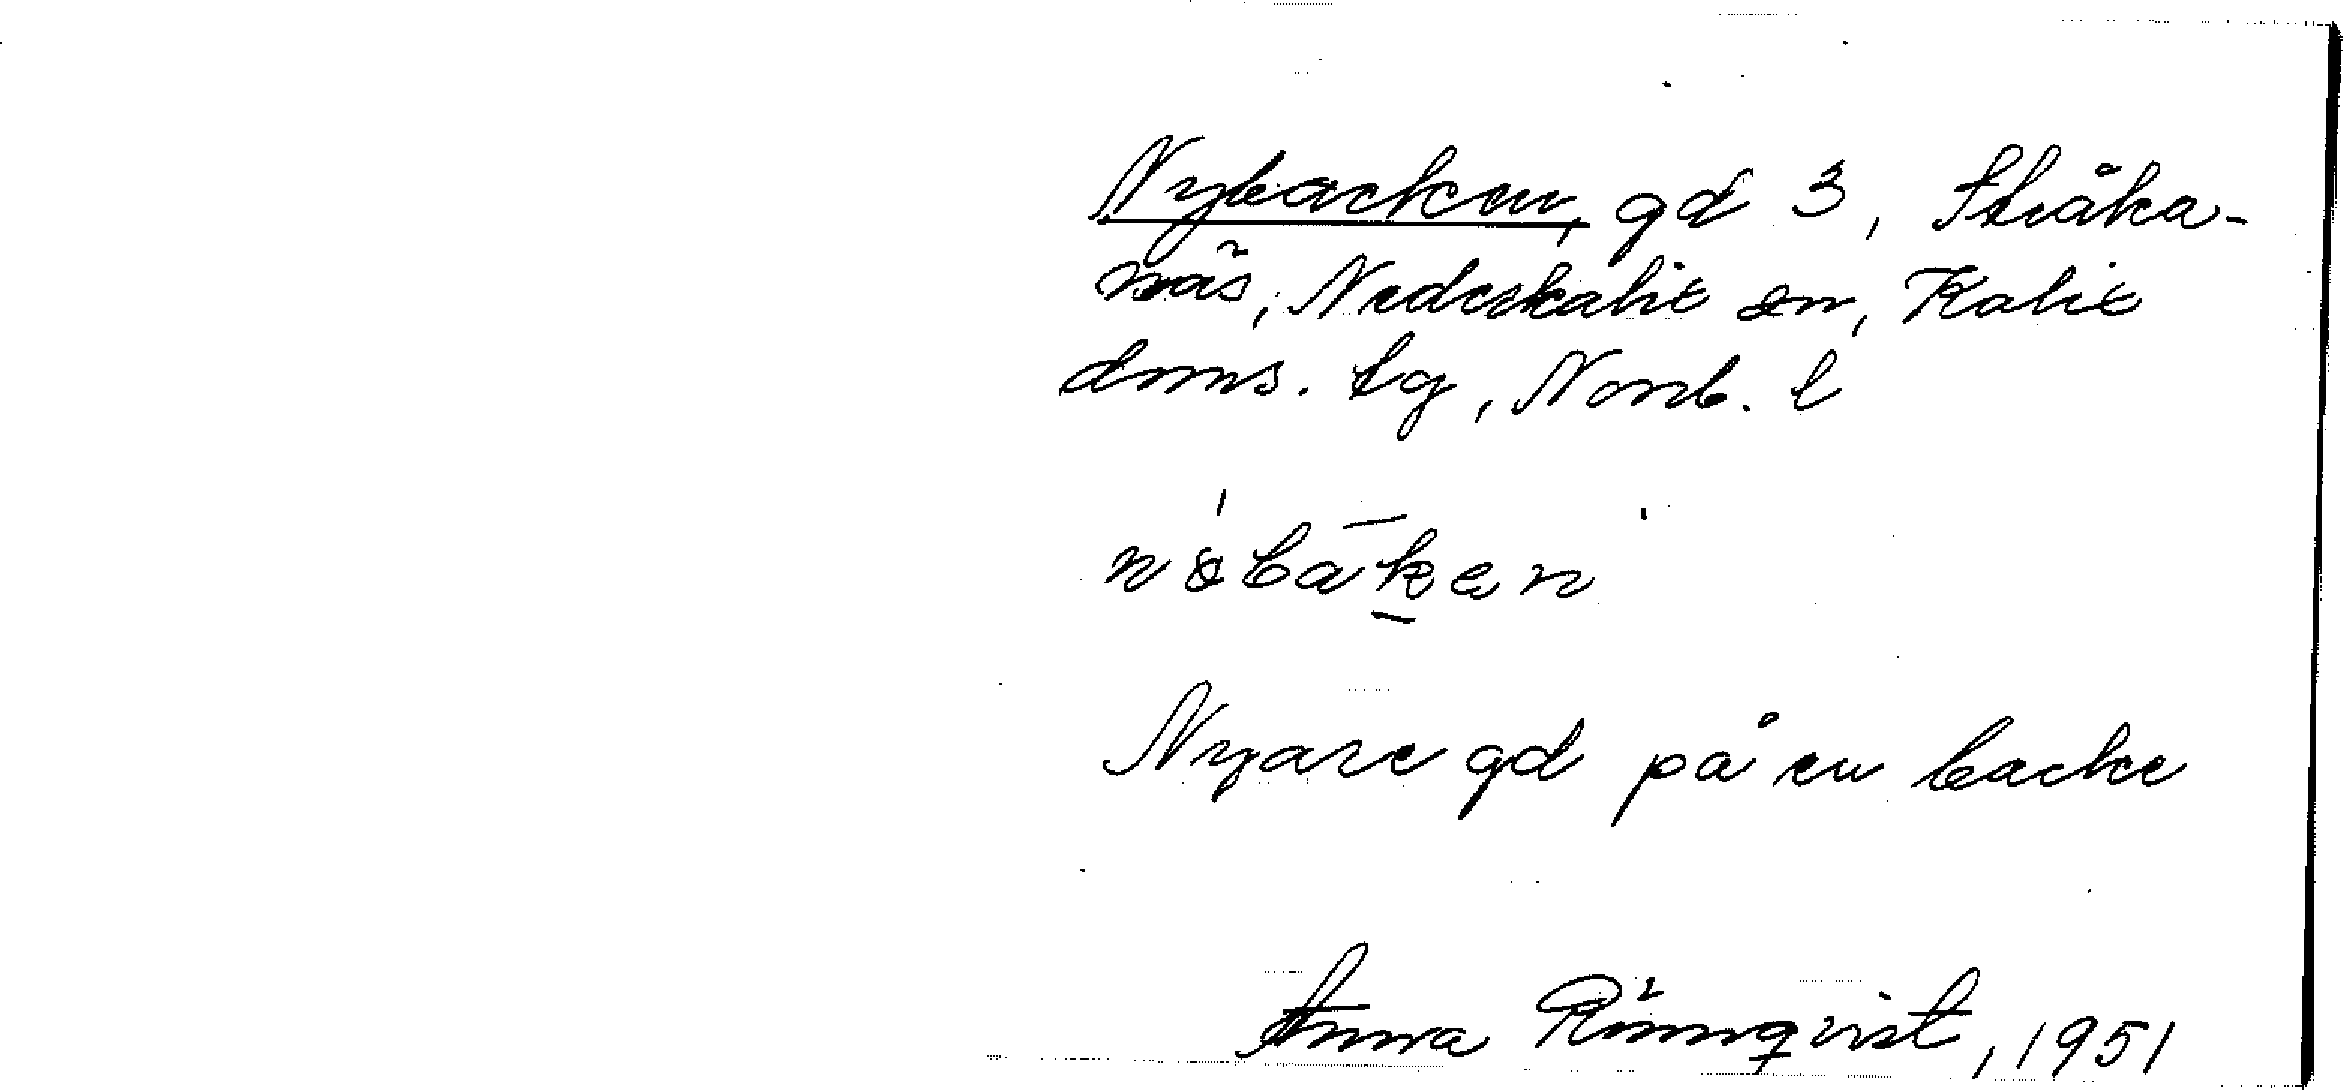 Nybacken, gd 3, Stråka-
näs, Nederkalix sn, Kalix
doms. lg, Norrb. l
nöbaken
Nyare gd på en backe
Anna Rönnqvist, 1951